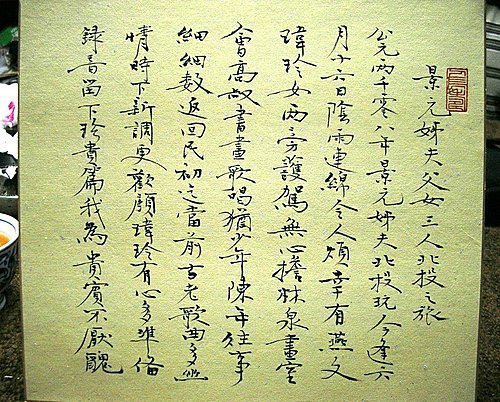 景元姊夫父女三人北投之旅
公元兩千零八年景元姊夫北投玩今逢六
月廿六日陰雨連綿令人煩幸有燕文
瑋玲女兩旁護駕無心擔林泉畫室
會高叔書畫歌唱猶少年陳年往事
細細數返回民初當前古老歌曲多
情時下新調更歡顏瑋玲有心多準備
錄音留下珍貴篇我為貴賓不厭醜